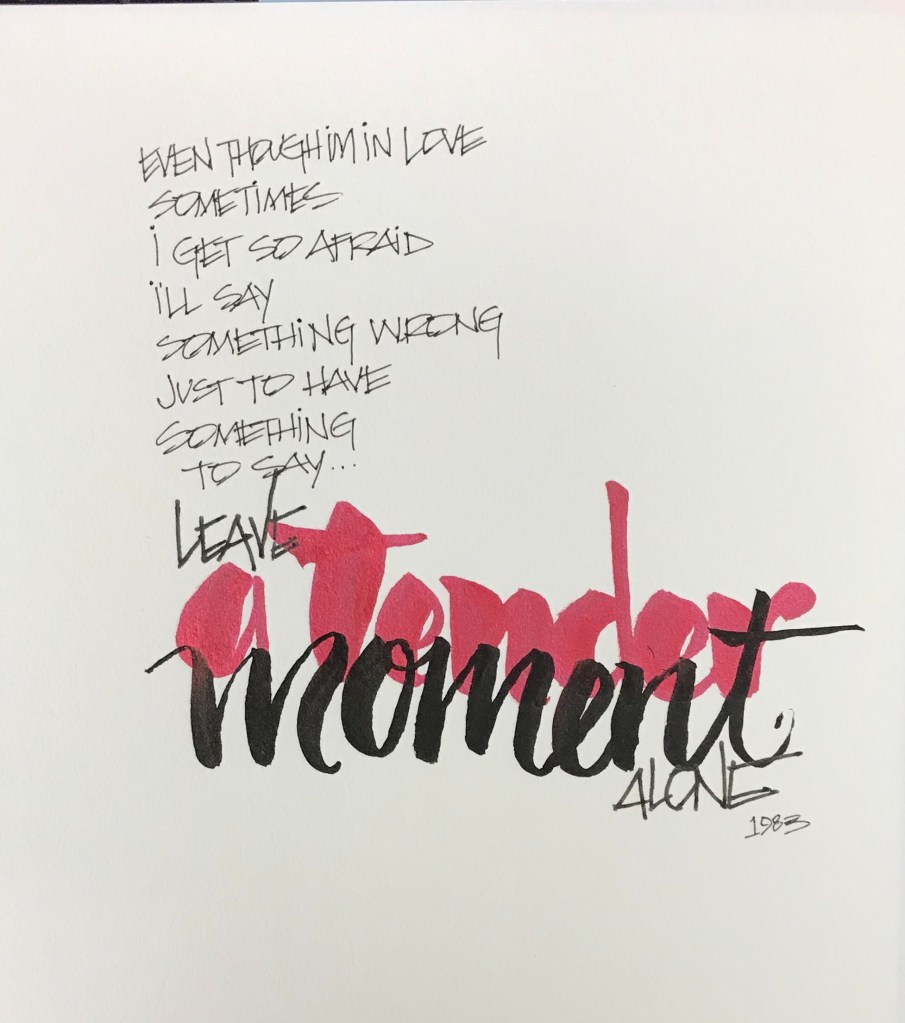 EVEN THOUGH iM iN LOVE
SOMETiMES
i GET SO AFRAiD
i'LL SAY
SOMETHiNG WRONG
JUST TO HAVE
SOMETHiNG
TO SAY...
LEAVE
a tender
moment
ALONE
1983